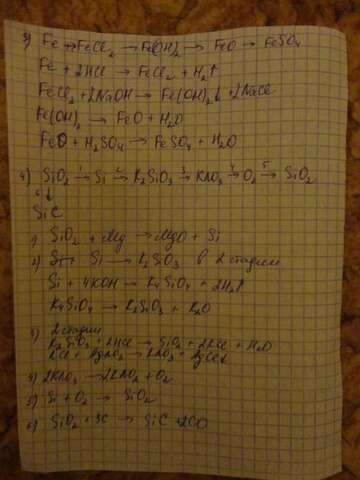 3) Fe → FeCl₂ → Fe(OH)₂ → FeO → FeSO₄
Fe + 2HCl → FeCl₂ + H₂↑
FeCl₂ + 2NaOH → Fe(OH)₂↓ + 2NaCl
Fe(OH)₂ → FeO + H₂O
FeO + H₂SO₄ → FeSO₄ + H₂O
4) SiO₂ →¹ Si →² K₂SiO₃ →³ KNO₃ →⁴ O₂ →⁵ SiO₂
6 ↓
SiC
1) SiO₂ + Mg → MgO + Si
2) Si → K₂SiO₃ в 2 стадии
Si + 4KOH → K₄SiO₄ + 2H₂↑
K₄SiO₄ → K₂SiO₃ + K₂O
3) 2 стадии
K₂SiO₃ + 2HCl → SiO₂ + 2KCl + H₂O
KCl + AgNO₃ → KNO₃ + AgCl↓
4) 2KNO₃ → 2KNO₂ + O₂
5) Si + O₂ → SiO₂
6) SiO₂ + 3C → SiC + 2CO